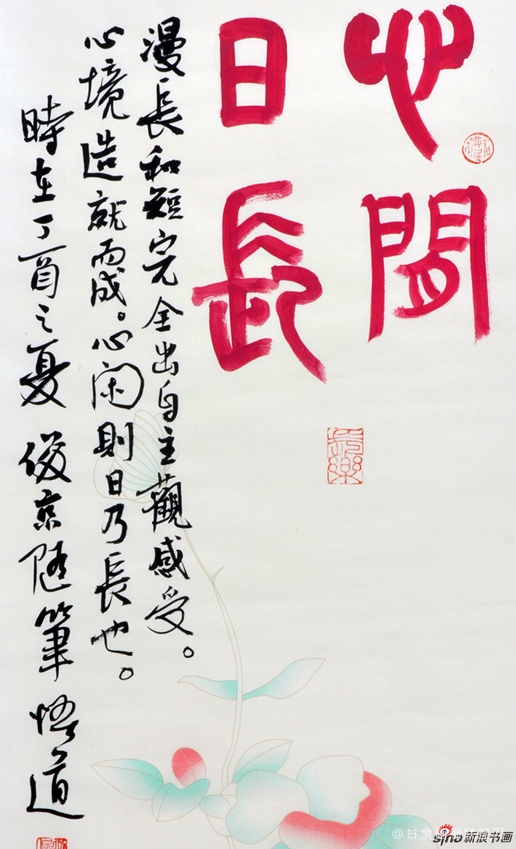 心閒
日長
漫長和短完全出自主觀感受。
心境造就而成。心闲則日乃長也。
時在丁酉之夏 俊京随筆 悟道
長樂
@甘肃
sina新浪书画